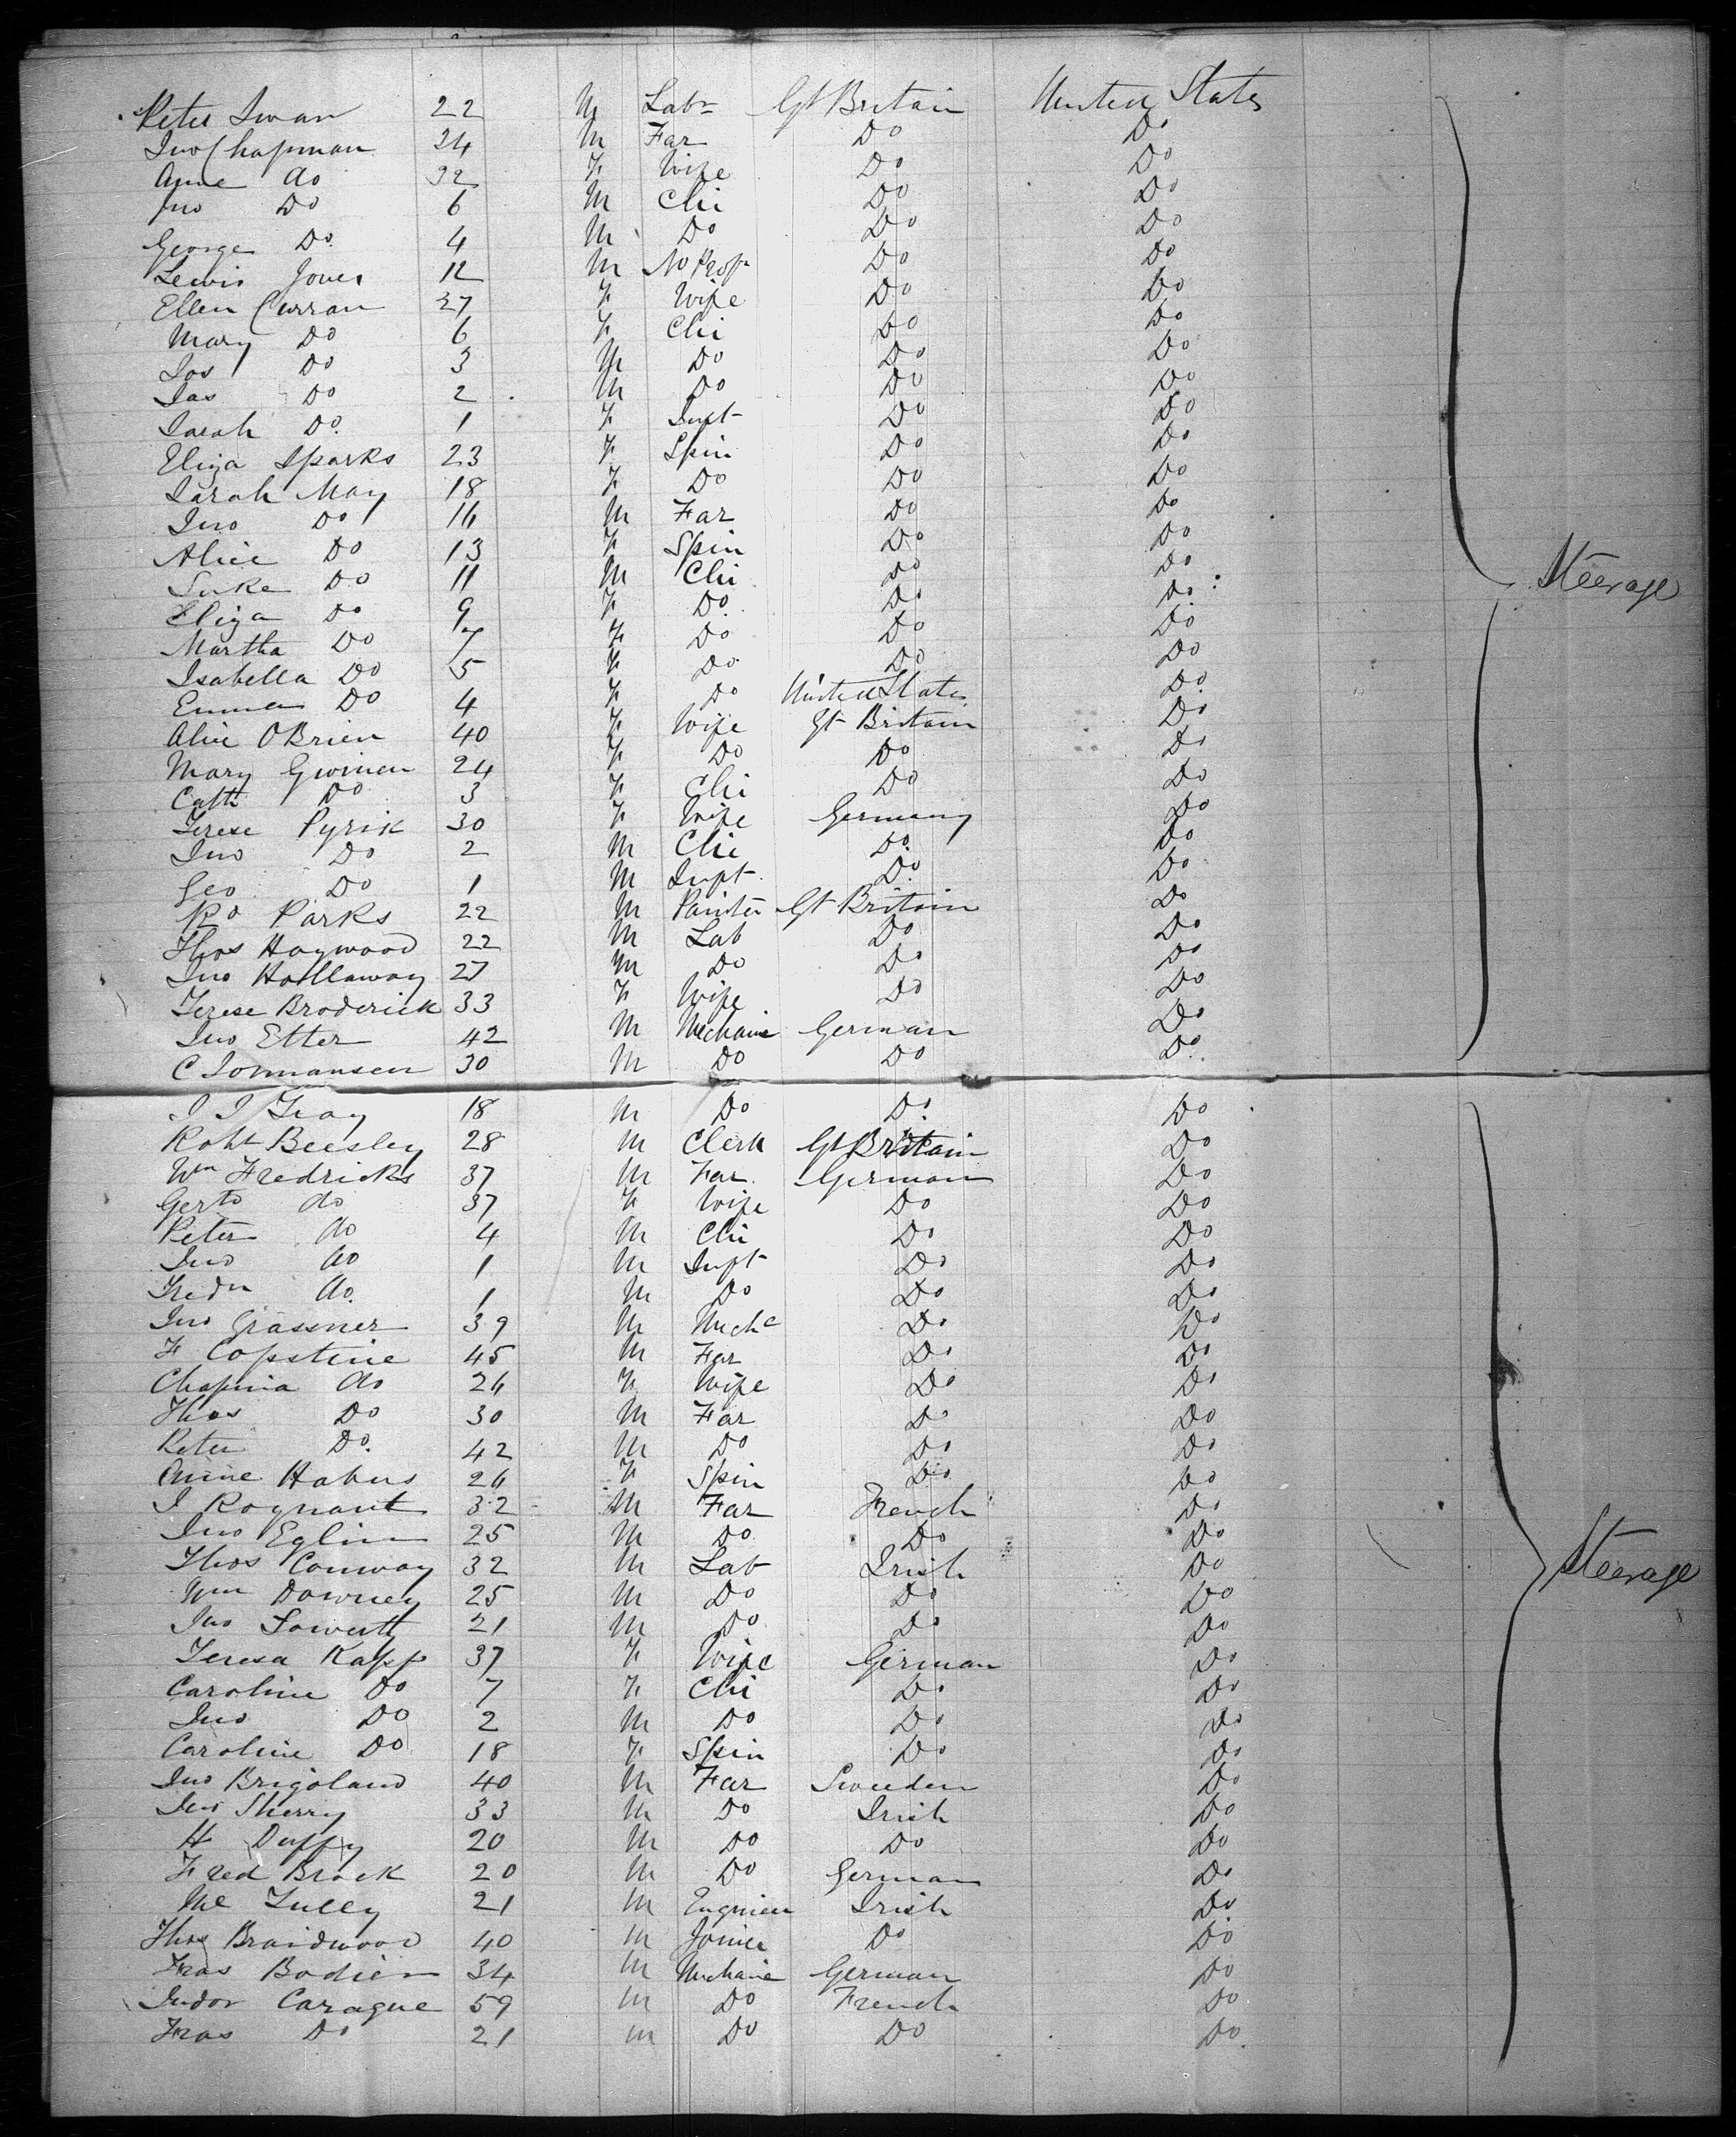 Peter Swan 22 M Labr Gt Britain United States
Jno Chapman 24 M Far Do Do
Anne do 32 F Wife Do Do
Jno Do 6 M Chi Do Do
George Do 4 M Do Do Do
Lewis Jones 12 M No Prof Do Do
Ellen Curran 27 F Wife Do Do
Mary Do 6 F Chi Do Do
Jos Do 3 M Do Do Do
Jas Do 2 M Do Do Do
Sarah Do 1 F Inft Do Do
Eliza Sparks 23 F Spin Do Do
Sarah May 18 F Do Do Do
Jno Do 16 M Far Do Do
Alice Do 13 F Spin Do Do
Luke Do 11 M Chi Do Do
Eliza Do 9 F Do Do Do
Martha Do 7 F Do Do Do
Isabella Do 5 F Do Do Do
Emma Do 4 F Do United States Do
Alice OBrien 40 F Wife Gt Britain Do
Mary 24 F Do Do Do
Cath Do 3 F Chi Do Do
Terese Pyrik 30 F Wife Germany Do
Jno Do 2 M Chi Do Do
Geo Do 1 M Inft Do Do
Rd Parks 22 M Painter Gt Britain Do
Thos Haywood 22 M Lab Do Do
Jno Hollaway 27 M Do Do Do
Terese Broderick 33 F Wife Do Do
Jno Etter 42 M Mechanic German Do
C 30 M Do Do Do
Steerage
18 M Do Do Do
Robt Beesley 28 M Clerk Gt Britain Do
Wm Fredricks 37 M Far German Do
Gert do 37 F Wife Do Do
Peter do 4 M Chi Do Do
Jno do 1 M Inft Do Do
Fredn do 1 M Do Do Do
Jno Grassner 39 M Mechc Do Do
F Copstine 45 M Far Do Do
do 26 F Wife Do Do
Thos Do 30 M Far Do Do
Peter Do 42 M Do Do Do
Annie 26 F Spin Do Do
J Rognant 32 M Far French Do
Jno Eglin 25 M Do Do Do
Thos Conway 32 M Lab Irish Do
Wm Downey 25 M Do Do Do
Jno 21 M Do Do Do
Teresa Kapp 37 F Wife German Do
Caroline Do 7 F Chi Do Do
Jno Do 2 M Do Do Do
Caroline Do 18 F Spin Do Do
Jno Brigoland 40 M Far Sweden Do
Jno Sherry 33 M Do Irish Do
H Duffy 20 M Do Do Do
Fred Brock 20 M Do German Do
Ml Tully 21 M Engnieer Irish Do
Thos Braidwood 40 M Joiner Do Do
Fras Bodien 34 M Mechanic German Do
Carague 59 M Do French Do
Fras Do 21 M Do Do Do
Steerage